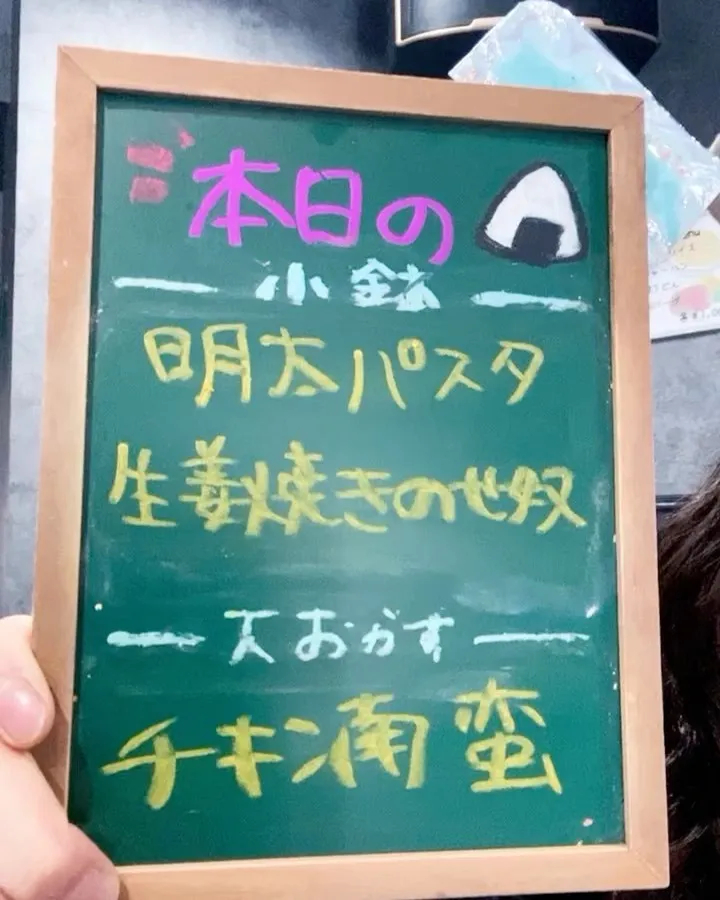 本日の
小鉢
明太パスタ
生姜焼きのせ奴
大おかず
チキン南蛮